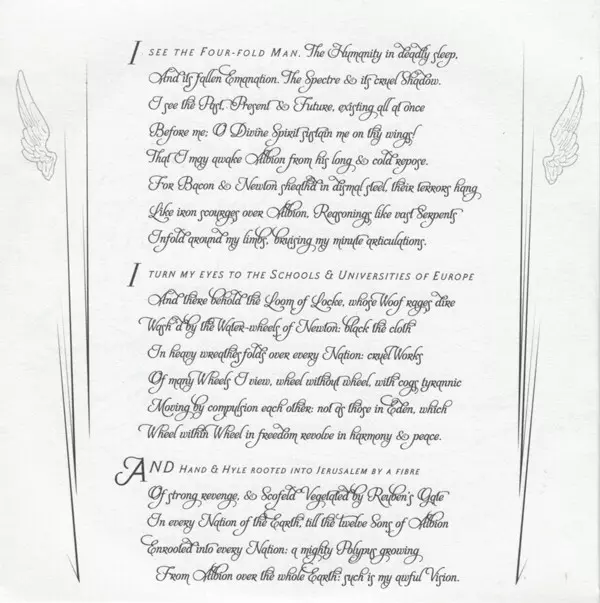 I see the Four-fold Man. The Humanity in deadly sleep,
And its fallen Emanation. The Spectre & its cruel Shadow.
I see the Past, Present & Future, existing all at once
Before me; O Divine Spirit sustain me on thy wings!
That I may awake Albion from his long & cold repose.
For Bacon & Newton sheath'd in dismal steel, their terrors hang
Like iron scourges over Albion, Reasonings like vast Serpents
Infold around my limbs, bruising my minute articulations.
I turn my eyes to the Schools & Universities of Europe
And there behold the Loom of Locke, whose Woof rages dire
Wash'd by the Water-wheels of Newton: black the cloth
In heavy wreathes folds over every Nation: cruel Works
Of many Wheels I view, wheel without wheel, with cogs tyrannic
Moving by compulsion each other: not as those in Eden, which
Wheel within Wheel in freedom revolve in harmony & peace.
And Hand & Hyle rooted into Jerusalem by a fibre
Of strong revenge, & Scofeld Vegetated by Reuben's Gate
In every Nation of the Earth, till the twelve Sons of Albion
Enrooted into every Nation: a mighty Polypus growing
From Albion over the whole Earth: such is my awful Vision.